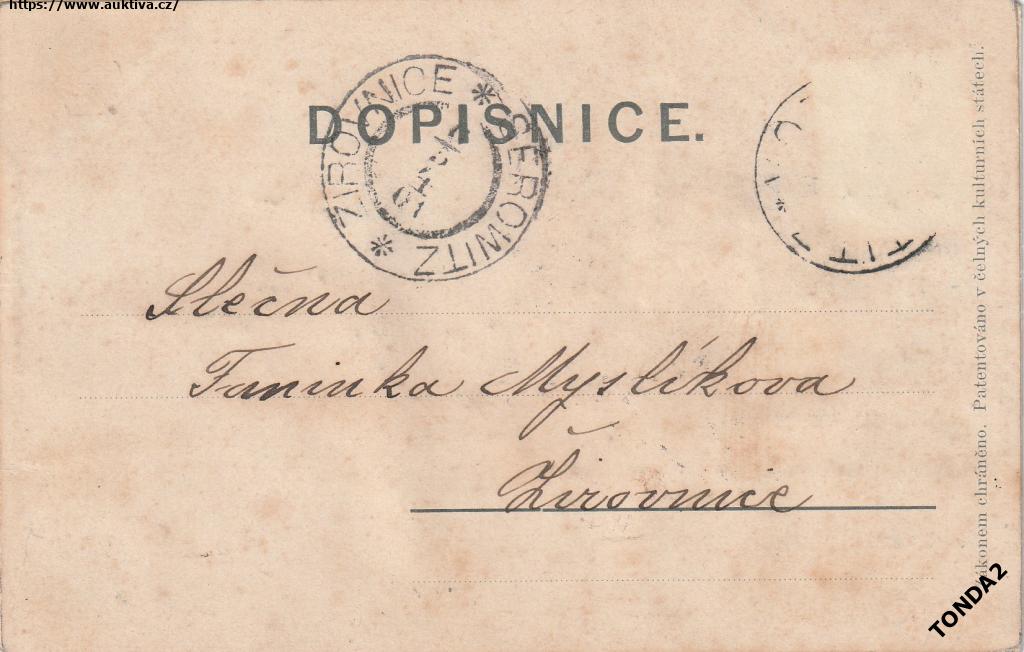 https://www.auktiva.cz/
DOPISNICE.
ŽIROVNICE * SEROWITZ *
Slečna
Myslíkova
Žirovnice
zákonem chráněno. Patentováno v čelných kulturních státech.
TONDA2